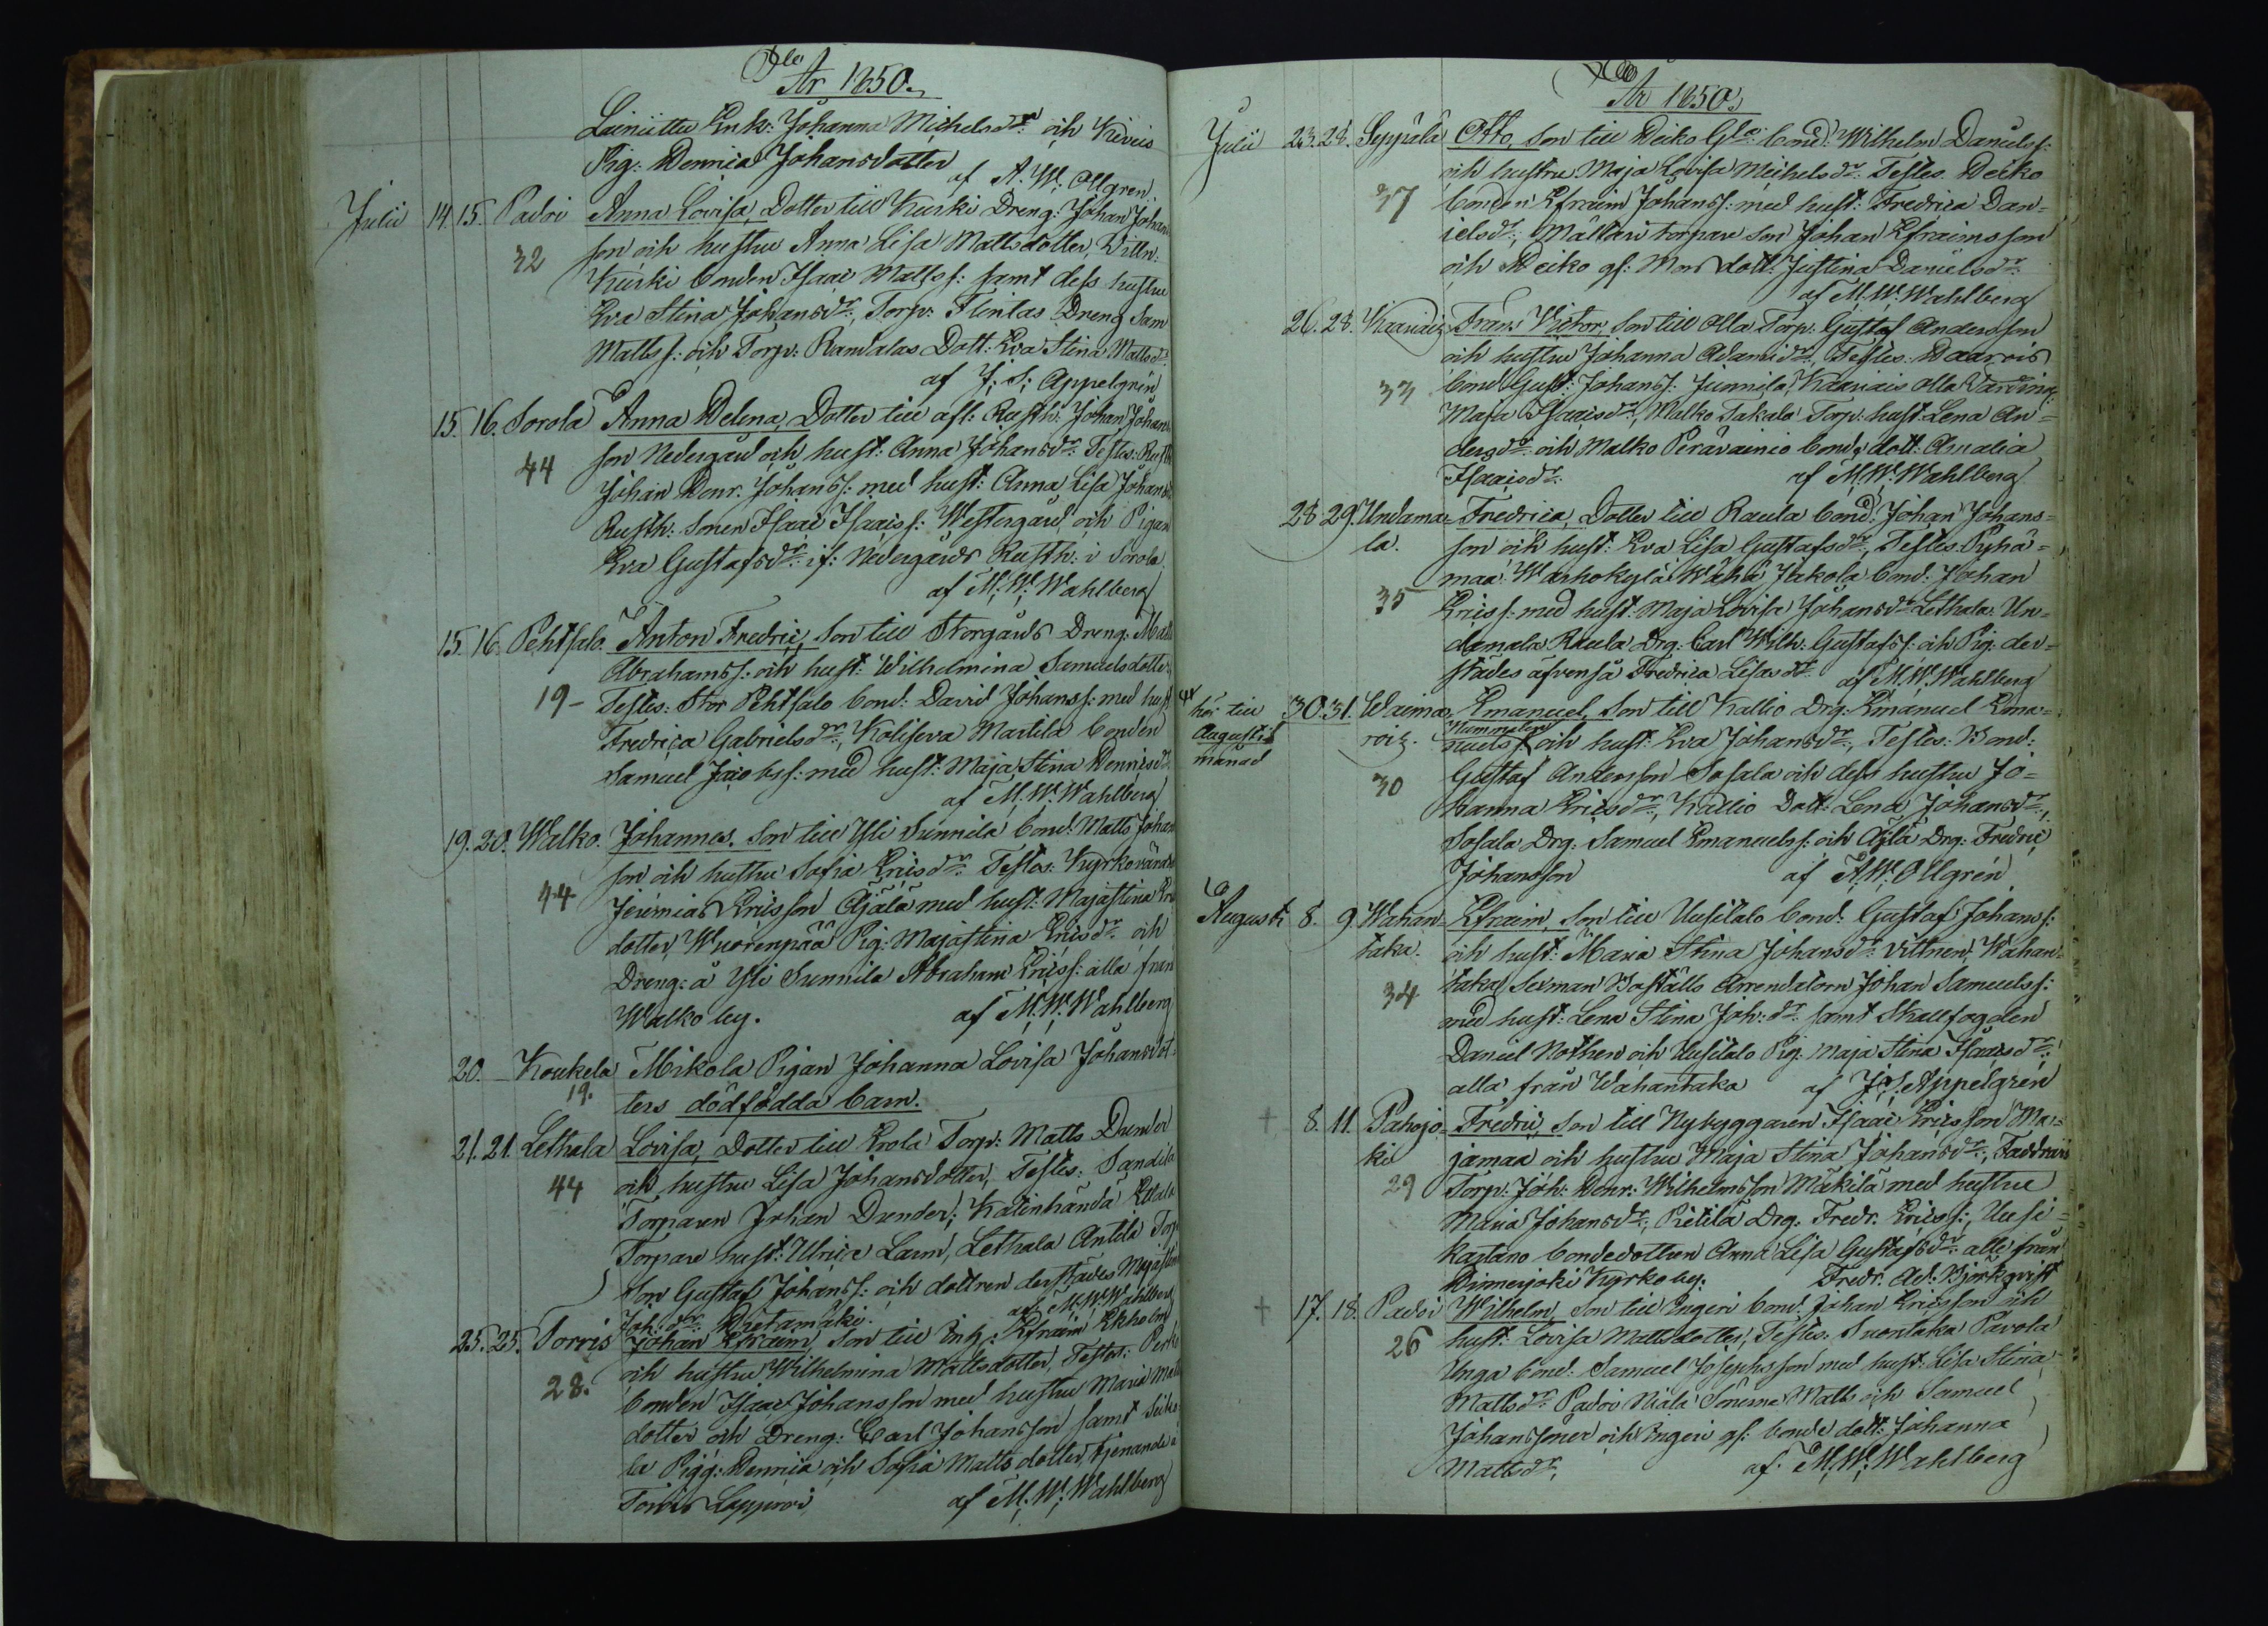 År 1850.
Leinittu Enk: Johanna Michelsdr: och Kiveis
Pig: Henrica Johansdotter
af A: W: Ollgren.
Julii 14. 15. Padoi Anna Lovisa, Dotter till Kurki Dreng: Johan Johans
32 son och hustru Anna Lisa Mattsdotter, Vittn:
Kurki bonden Isaac Mattss: samt dess hustru
Eva Stina Johansdr:, Torp: Flinkas Dreng Sam
Mattss: och Torp: Randalas Dott: Eva Stina Mattsdr:
af J: S: Appelgrén
15. 16. Sorola Anna Helena, Dotter till afl: Rusth: Johan Johans
44 son Nedergård och hust: Anna Johansdr: Testes: Rusth
Johan Henr. Johanss: med hust: Anna Lisa Johansd
Rusth: sonen Isaac Isaacss: Westergård, och Pigan
Eva Gustafsdr: if: Nedergårds Rusth: i Sorola
af M: W: Wahlberg
15. 16. Pehtsalo. Anton Fredric, Son till Storgårds Dreng: Matts
Abrahamss: och hust: Wilhelmina Samuelsdotter,
19- Testes: Stor Pehtsalo bond: David Johanss: med hust
Fredrica Gabrielsdr:, Koliseva Martila bonden
Samuel Jacobss: med hust: Maja Stina Henricsdr:
af M: W: Wahlberg
19. 20. Walko. Johannes. Son till Yli Sunnila bond: Matts Johan
son och hustru Sofia Ericsdr: Testes: Kyrkovärden
44 Jeremias Ericsson Äjälä med hust: Majastina Eric
dotter, Wuorenpää Pig: Majastina Ericsdr: och
Dreng: å Yli Sunnila Abraham Ericss: alla från
Walko by. af M: W: Wahlberg
20. Koukela Mikola Pigan Johanna Lovisa Johansdot-
19. ters dödfödda barn.
21. 21. Lethala Lovisa, Dotter till Erola Torp: Matts Dunder
44 och hustru Lisa Johansdotter, Testes: Sandila
Torparen Johan Dunder, Katinhändä
Torpare hust: Ulrica Lann, Lethala Antila Torp
Son Gustaf Johanss: och dottren derstädes Majastina
Joh: dr: af M: W: Wahlberg
25. 25. Torris Johan Efraim, Son till Inh: Efraim Ekholm
28. och hustru Wilhelmina Mattsdotter, Testes:
bonden Isaac Johansson med hustru Maria Matts
dotter och Dreng: Carl Johansson samt
la Pigg: Henrica och Sofia Mattsdotter, tjenande i
Torris af M: W: Wahlberg
År 1850.
Julii 23. 28. Seppälä Otto, Son till Heiko Gla: bond: Wilhelm Daniels:
och hustru Maja Lovisa Michelsdr: Testes. Heiko
37 bonden Efraim Johanss: med hust: Fredrica Dan-
ielsdr:, Mälläri torpare son Johan Efraimsson
och Heiko gf: Mors dott: Justina Danielsdr:
af M: W: Wahlberg
26. 28. Kaariais Frans Victor, Son till Olla Torp: Gustaf Andersson
och hustru Johanna Adamsdr:, Testes:
33 bond Gust: Johanss: Junnila, Kaariais Olla
Maja Isaacsdr:, Malko Takala Torp: hust: Lena An-
dersdr: och Malko Perävainio bonde dott: Amalia
Isaacsdr: af M: W: Wahlberg
28. 29. Undama- Fredrica, Dotter till Raula bond: Johan Johans-
la. son och hust: Eva Lisa Gustafsdr:, Testes: Pyhä-
maa: Warhokylä Wähä Jaakola bond: Johan
35 Ericss: med hust: Maja Lovisa Johansdr: Lethala: Un-
damala Raula Drg: Carl Wilh: Gustafss: och Pig: der-
städes äfvenså Fredrica Lisasdr: af M: W: Wahlberg
hör till Augusti månad 30. 31. Waima- Emanuel, Son till Kallio Drg: Emanuel Ema-
roiz. nuels: och hust: Eva Johansdr:, Testes: Bond:
30 Gustaf Andersson Sasala och dess hustru Jo-
hanna Ericsdr:, Kallio Dott: Lena Johansdr:,
Sasala Drg: Samuel Emanuelss: och Äjlä Drg: Fredric
Johansson af A: W: Ollgrén
Augusti 8. 9. Wahan- Efraim, Son till Uusitalo bond: Gustaf Johanss:
taka. och hust: Maria Stina Johansdr: Vittnen: Wahan-
34 taka Sexman Boställs Arrendatorn Johan Samuelss:
med hust: Lena Stina Joh: dr: samt Skallfogden
Daniel Nothen och Uusitalo Pig: Maja Stina Isaacsdr:
alla från Wahantaka af J: S: Appelgrén
+ 8. 11. Pahojo- Fredric, Son till Nybyggaren Isaac Ericsson Ma-
ki jamaa och hustru Maja Stina Johansdr:, Faddrar:
29 Torp: Joh: Henr: Wilhelmsson Mäkilä med hustru
Maria Johansdr:, Pietilä Drg: Fredr. Ericss:, Uusi-
kartano bondedottren Anna Lisa Gustafsdr: alle från
Hinnerjoki Kyrkoby. Fredr. Ad: Björkqvist
+ 17. 18. Padoi Wilhelm, Son till Ingeri bond: Johan Ericsson och
26 hust: Lovisa Mattsdotter, Testes. Suontaka Pavola
Unga bond: Samuel Josephsson med hust: Lisa Stina
Mattsdr: Padoi Niala Sönerna Matts och Samuel
Johanssöner och Ingeri gf: bonde dott: Johanna
Mattsdr:, af. M: W: Wahlberg